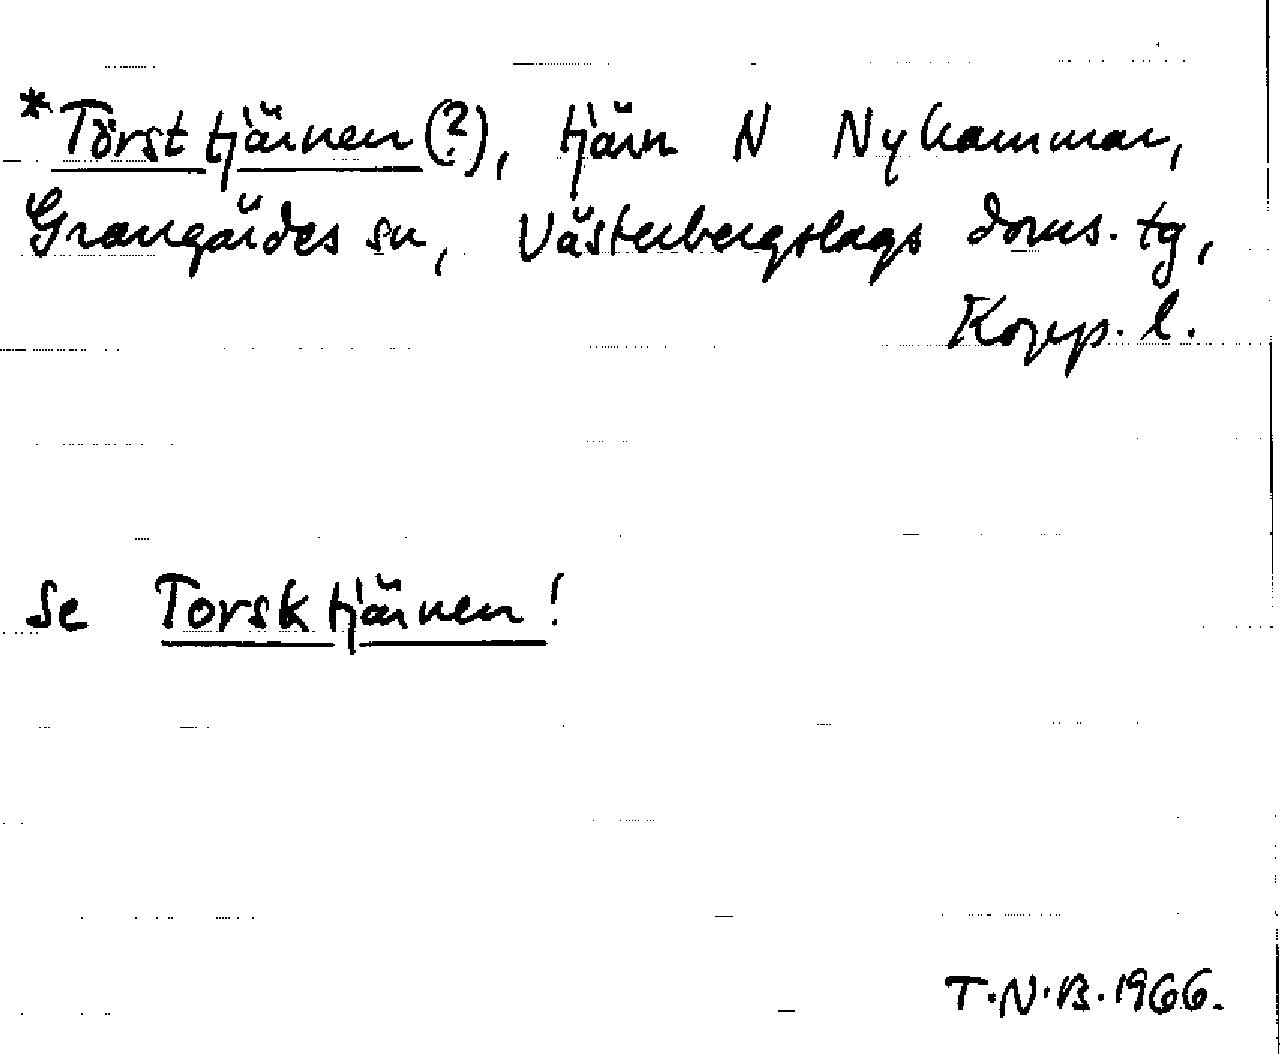 *Törsttjärnen(?), tjärn N Nyhammar,
Grangärdes sn, Västerbergslags doms. tg,
Kopp. l.
Se Torsktjärnen!
T.N.B. 1966.